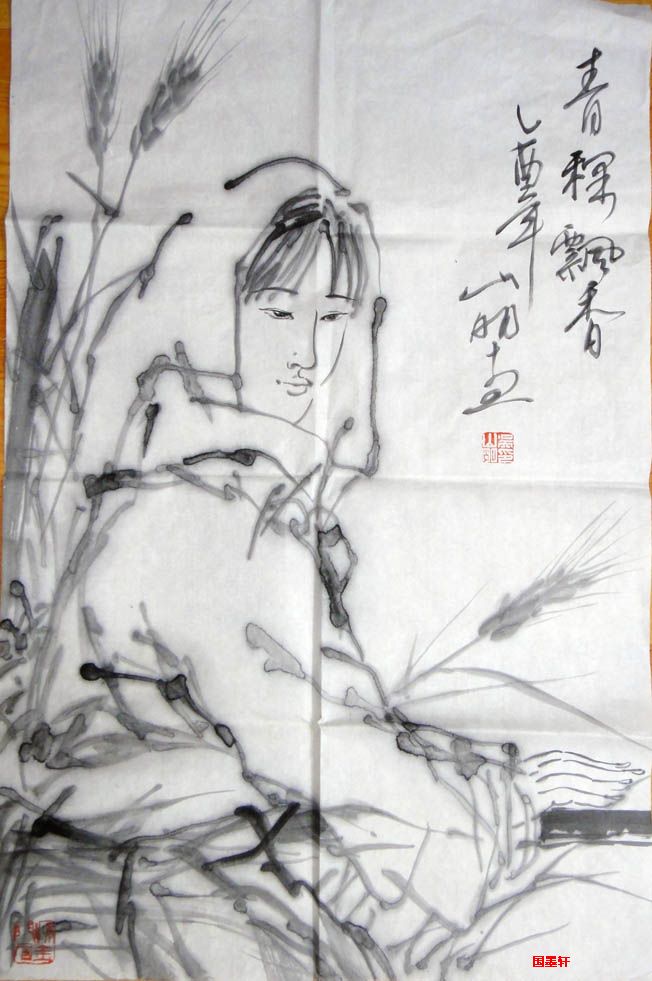 青稞飘香
乙酉年
山明画
国墨轩